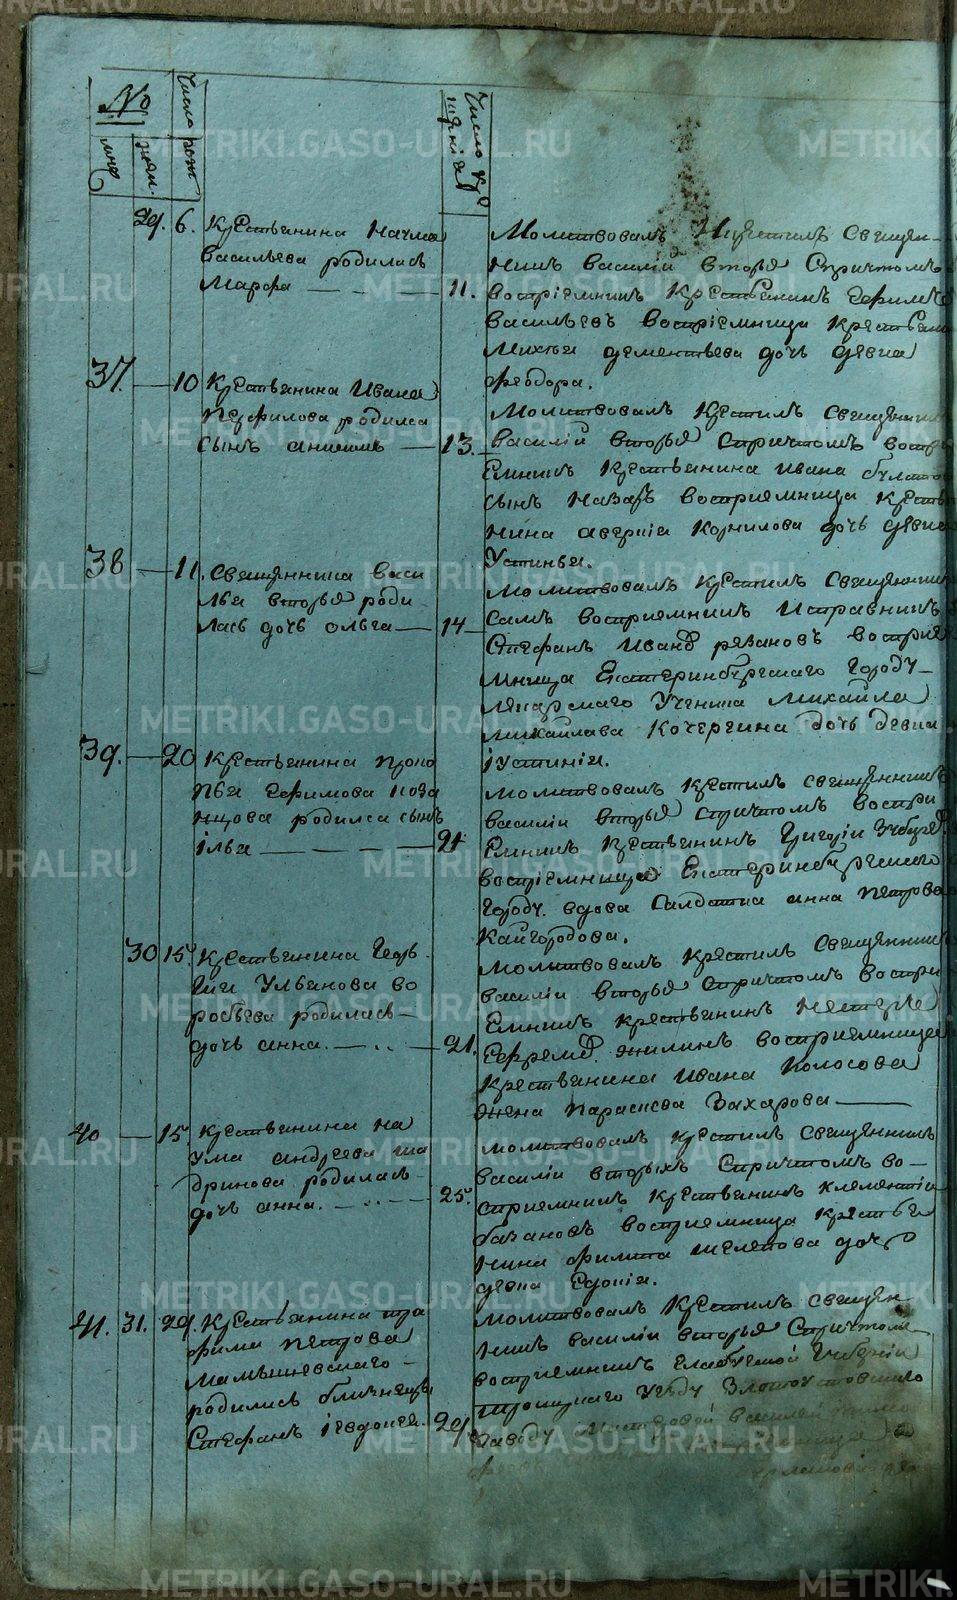 METRIKI.GASO-URAL.RU
№
муж
жен.
Число рож
Число крещенія
29. 6. Крестьянина
васильева родилась
Марфа
11.
Молитвовалъ Икрестилъ Священ-
никъ василій вторыя Спричтомъ
воспріемникъ Крестьянинъ
васильевъ воспріемница
дементьева дочь девка
феодора.
37. 10 Крестьянина Ивана
Перфилова родился
сынъ
13.
Молитвовалъ Крестилъ Священникъ
василій вторыя Спричтомъ воспрі
емникъ Крестьянина ивана
сынъ Назаръ восприемница Крестья
нина аверкіа Корнилова дочь девка
Устинья.
38 11. Священника васи
лья вторыя роди
лась дочь ольга
14
Молитвовалъ Крестилъ Священникъ
Самъ восприемникъ Исправникъ
Стефанъ Иванд рязановъ восприе
мница Екатеринбургскаго Город
Ученика Михайла
михайлава Кочергина дочь девка
іустиніа.
39. 20 Крестьянина проко
пья Ефимова каза
нцова родился сынъ
ілья
21
молитвовалъ Крестилъ священникъ
василіи вторыя Спричтомъ воспри
емникъ Крестьянинъ Григоріи
воспріемница Екатеринбургскаго
город. вдова Салдатка анна петрова
Кайгородова.
30 15. Крестьянина Геор
гия Ульянова во
робьева родилась
дочь анна.
21.
Молитвовалъ Крестилъ Священникъ
василіи вторыя Спричтомъ воспри
емникъ крестьянинъ нестеръ
Ефремд. жилинъ восприемница
крестьянина Ивана Колосова
жена параскева Захарова
40 15 крестьянина на
ума андреева ша
дринова родилась
дочь анна.
25.
молитвовалъ крестилъ Священникъ
василіи вторыхъ Спричтомъ во-
сприемникъ крестьянинъ клементіи
базановъ восприемница крестья
нина филипа шелепова дочь
девка Едокіа.
41. 31. 29. Крестьянина тро
фима петрова
мамышевскаго
родились близнецы
Стефанъ іевдокея.
29
молитвовалъ Крестилъ священ
никъ василіи вторыя Спричтомъ
восприемникъ Губерніи
троицкаго Уезду Златоустовскаго
заводу мастеровой василей